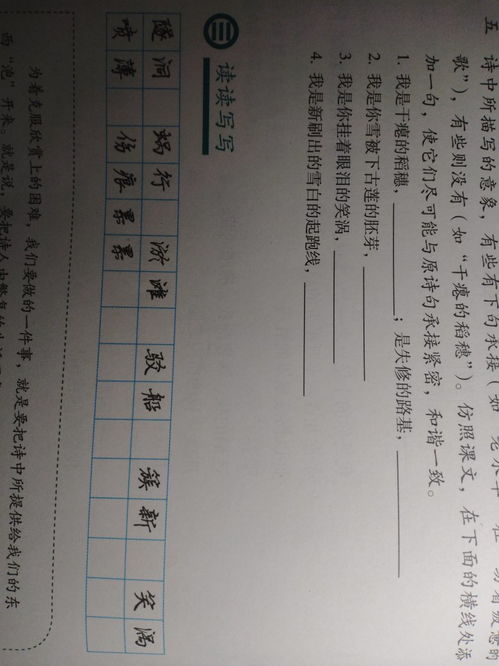 五 诗中所描写的意象，有些有下句承接（如“
歌”），有些则没有（如“干瘪的稻穗”）。仿照课文，在下面的横线处添
加一句，使它们尽可能与原诗句承接紧密，和谐一致。
1. 我是干瘪的稻穗，；是失修的路基，
2. 我是你雪被下古莲的胚芽，
3. 我是你挂着眼泪的笑涡，
4. 我是新刷出的雪白的起跑线，
三 读读写写
隧洞 蜗行 淤滩 驳船 簇新 笑涡
喷薄 伤痕累累
为着克服欣赏上的困难，我们要做的一件事，就是要把诗中所提供给我们的东
西“泡”开来。就是说，要把诗人由繁